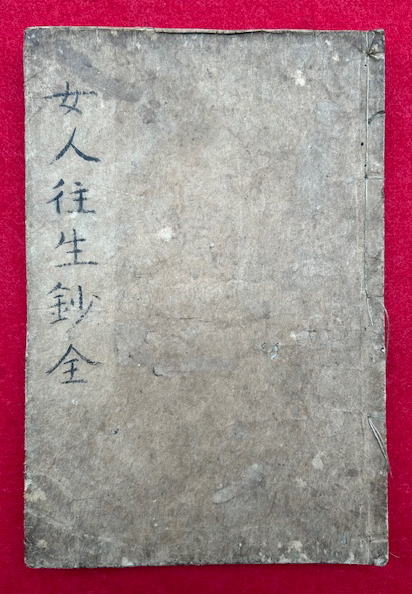 女人往生鈔全